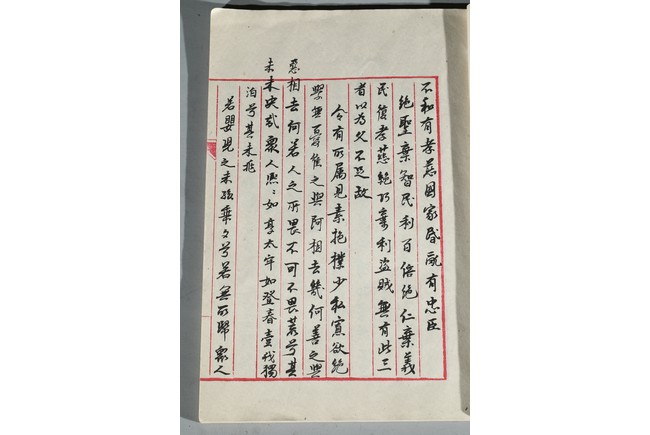 不和有孝慈國家昏亂有忠臣
絶聖棄智民利百倍絶仁棄義
民復孝慈絶巧棄利盜賊無有此三
者以為文不足故
令有所属見素抱樸少私寡欲絶
學無憂唯之與阿相去幾何善之與
惡相去何若人之所畏不可不畏荒兮其
未未央哉衆人熙:如享太牢如登春臺我獨
泊兮其未兆
若嬰兒之未孩乘々兮若無所歸衆人